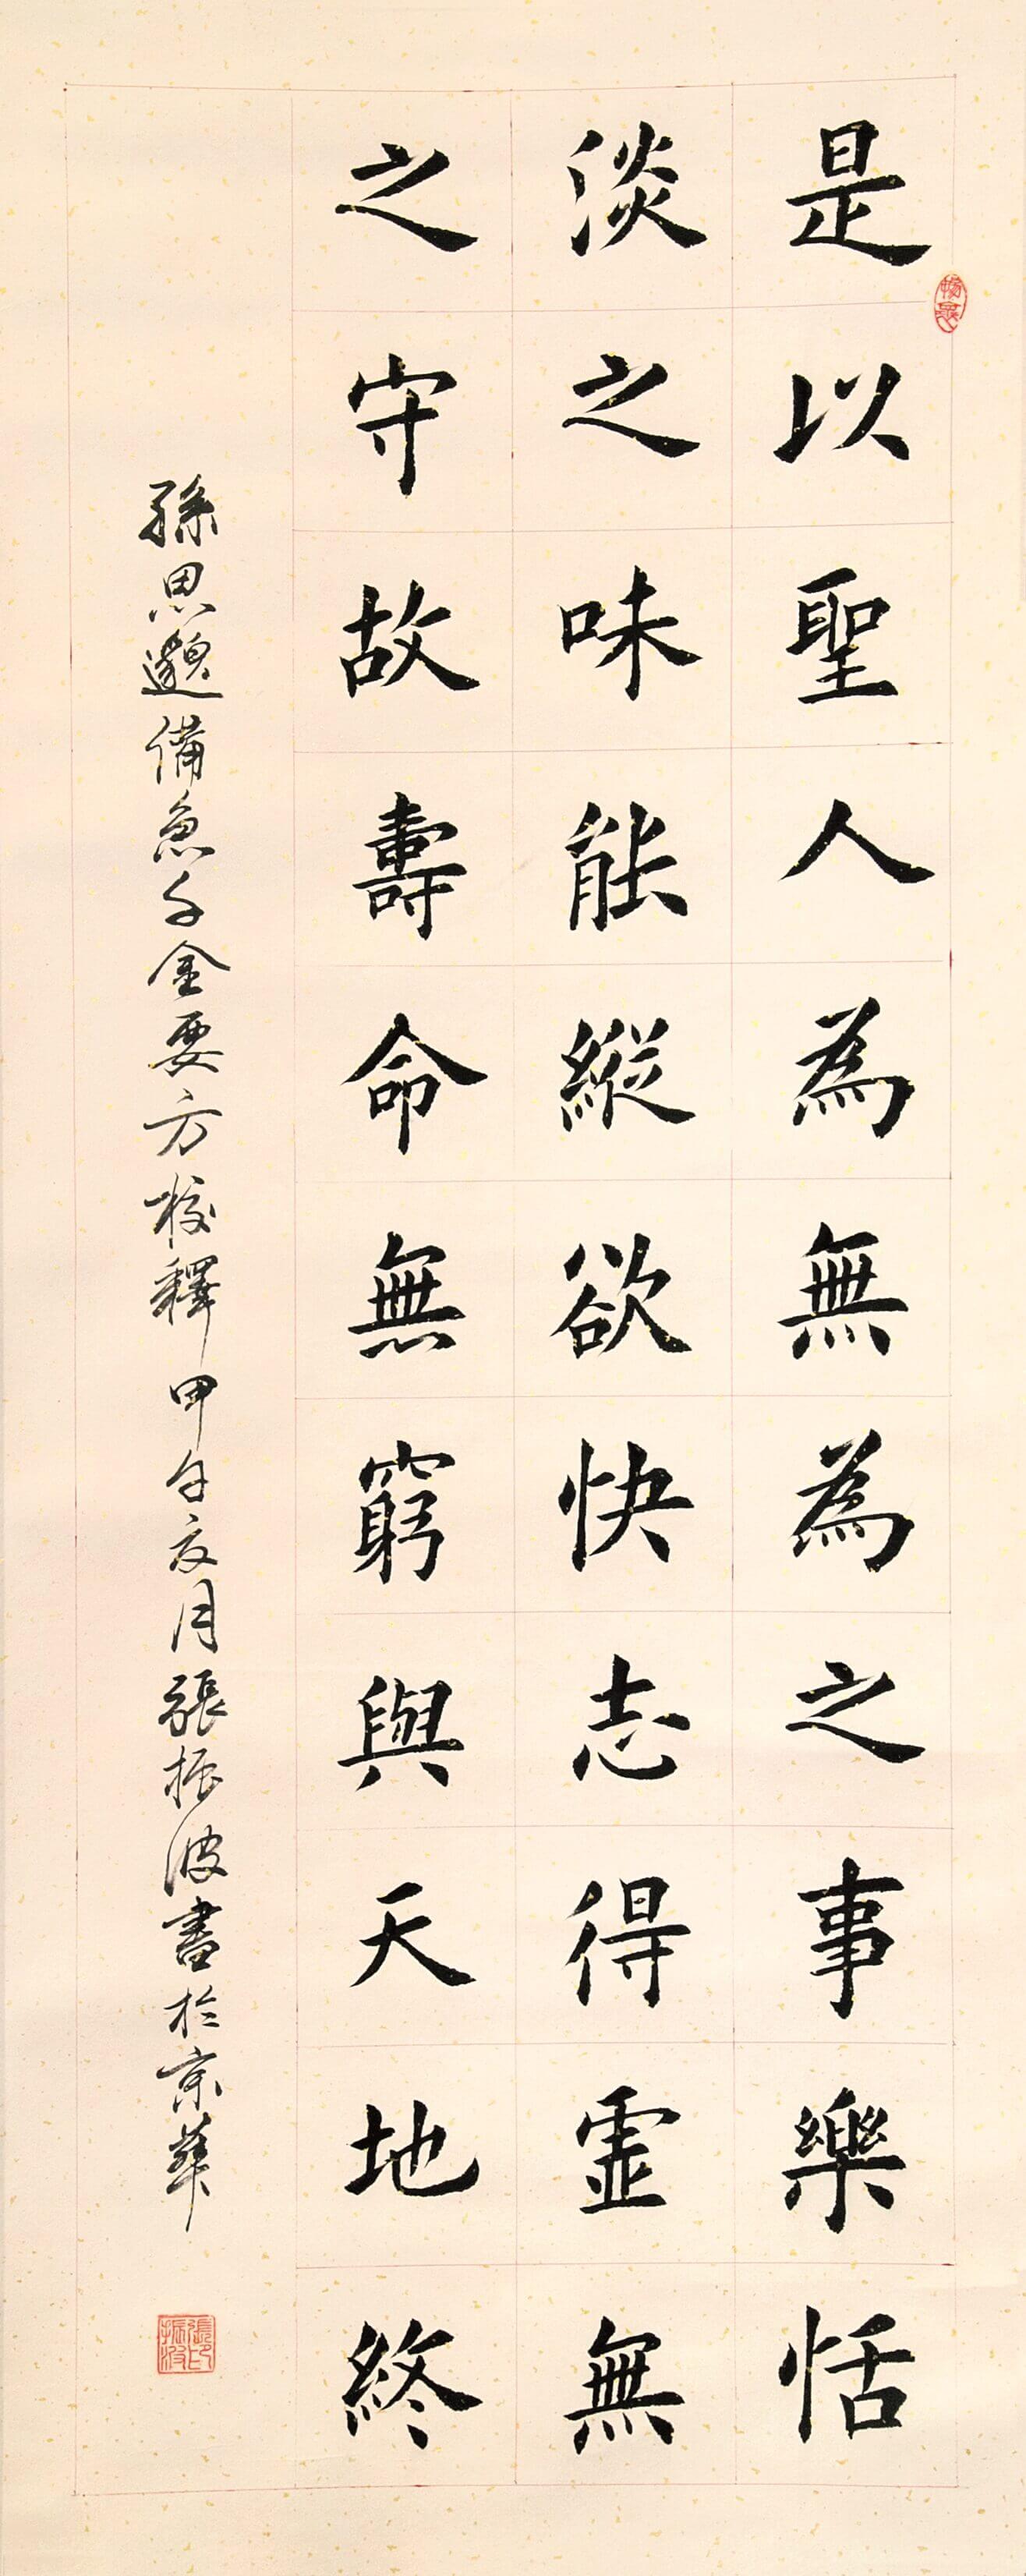 是以聖人為無為之事樂恬
淡之味能縱欲快志得虛無
之守故壽命無窮與天地終
孫思邈備急千金要方校釋甲午夏月張振波書於京華
張振波印